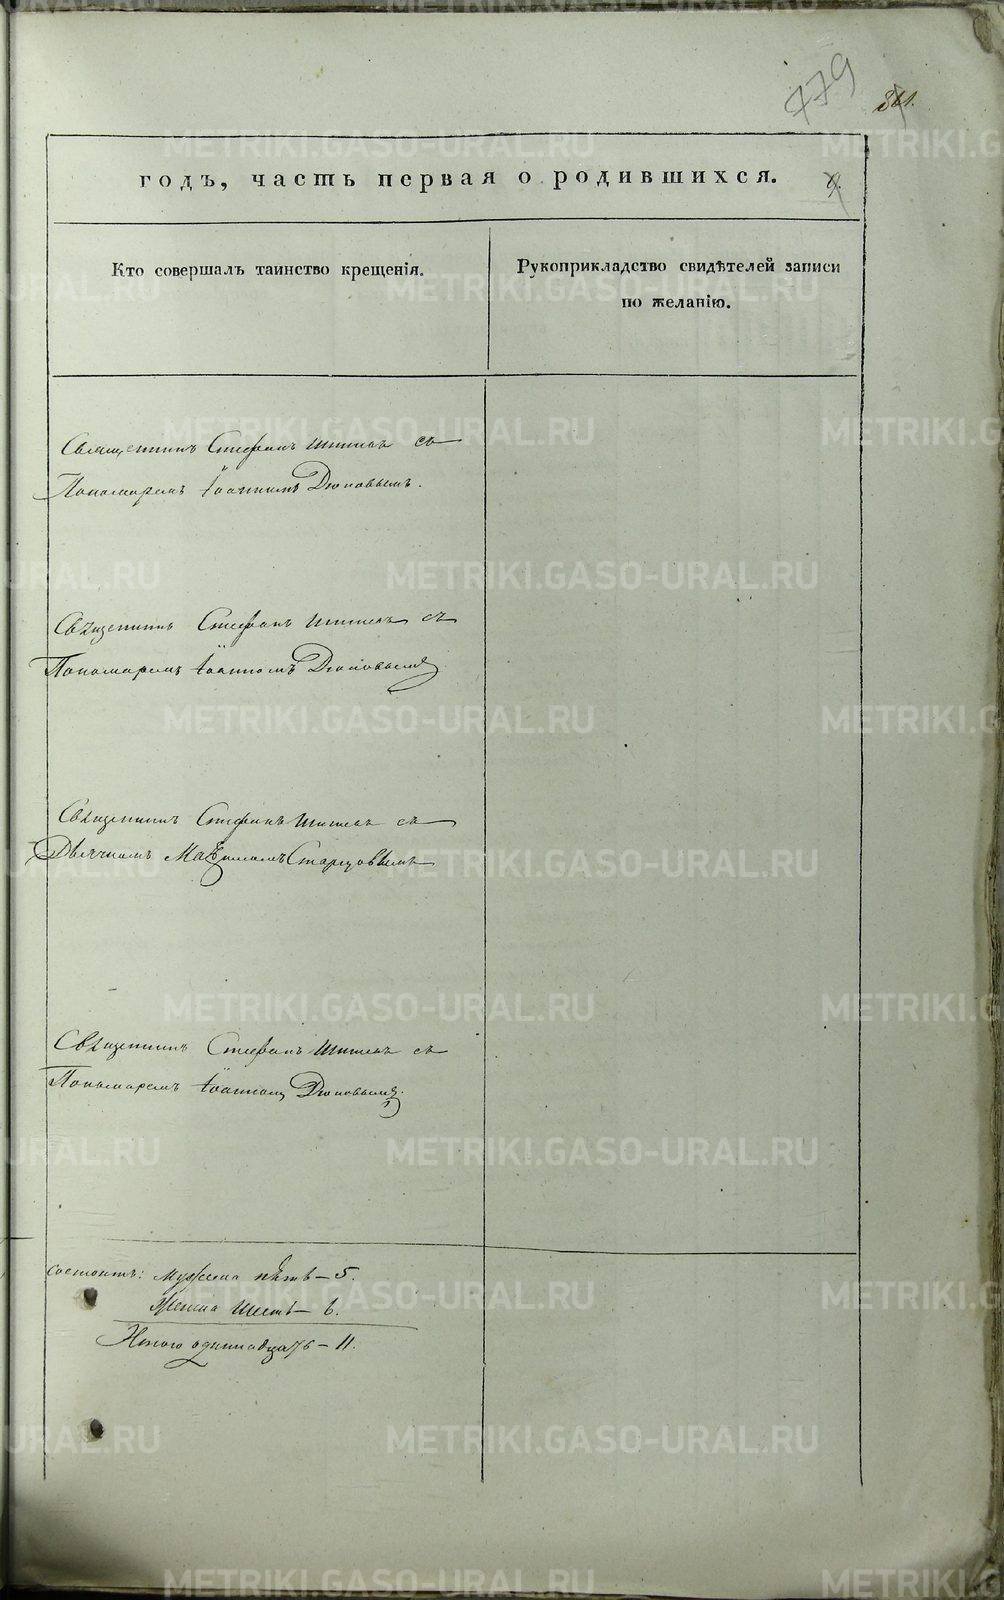 479
361.
годъ, часть первая о родившихся.
9.
Кто совершалъ таинство крещенія.
Рукоприкладство свидѣтелей записи
по желанію.
Священникъ Стефанъ съ
Пономаремъ Іоанномъ Дюковымъ.
Священникъ Стефанъ съ
Пономаремъ Іоанномъ Дюковымъ
Священникъ Стефанъ съ
Дьячкомъ Маѯимомъ Старцовымъ
Священникъ Стефанъ съ
Пономаремъ Іоанномъ Дюковымъ.
состоитъ: Мужеска пять – 5.
Женска шесть – 6.
одиннадцать – 11.
METRIKI.GASO-URAL.RU